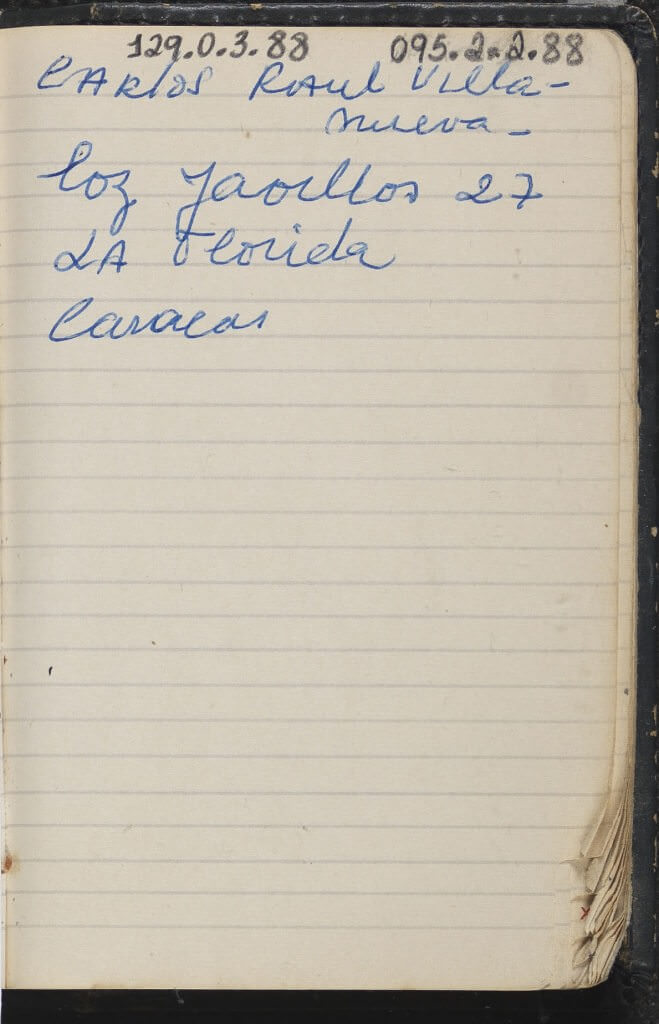 129.0.3.88 095.2.2.88
CARlos RAul Villa-
nueva-
Loz Javillos 27
LA Florida
Caracas